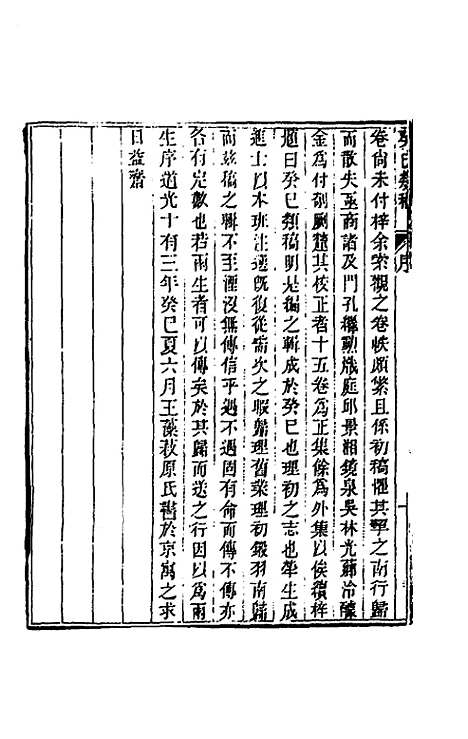 癸巳類稿 序
卷尚未付梓余索觀之卷帙頗繁且係初稿懼其挈之南行歸
而散失亟商諸及門孔繼勳熾庭邱景湘鏡泉吳林光蘇泠醵
金爲付剞劂楚其校正者十五卷爲正集餘爲外集以俟續梓
題曰癸巳類稿明是編之輯成於癸巳也理初之志也畢生成
進士以本班注選旣復從需次之暇歸理舊業理初鎩羽南歸
而玆稿之輯不至湮沒無傳信乎遇不遇固有命而傳不傳亦
各有定數也若兩生者可以傳矣於其歸而送之行因以爲兩
生序道光十有三年癸巳夏六月王藻菽原氏書於京寓之求
日益齋